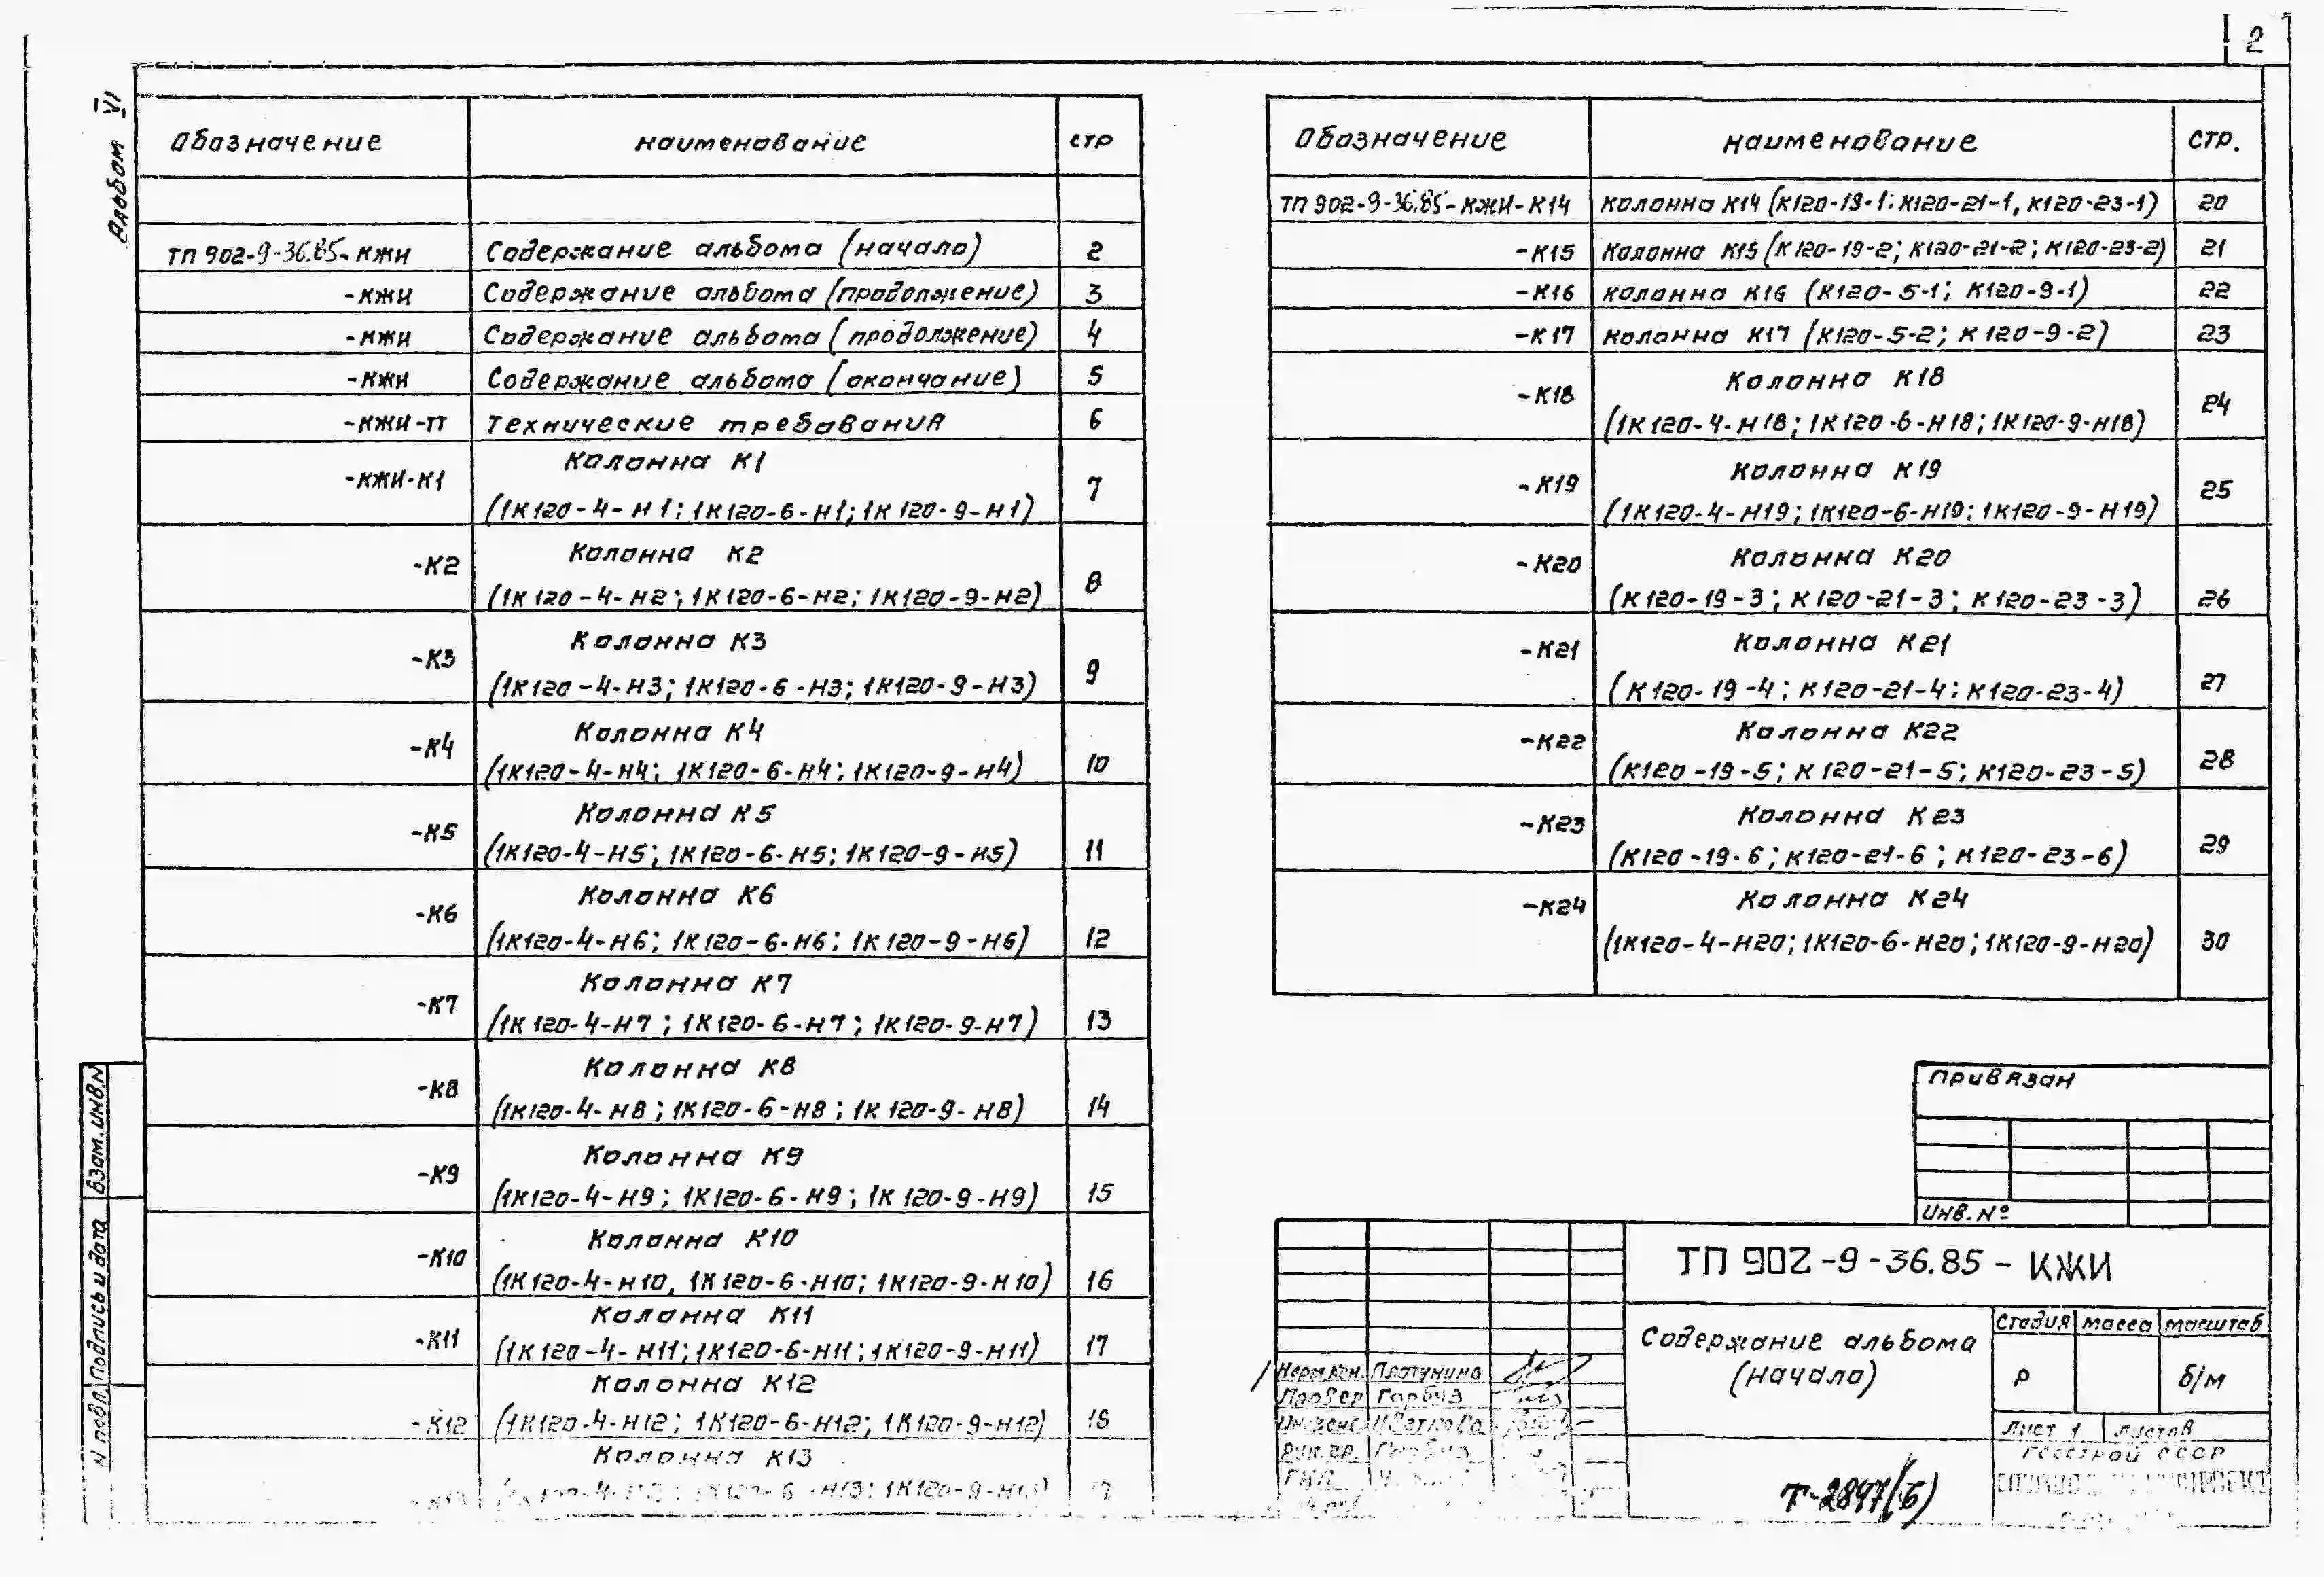 2
Альбом VI
Обозначение наименование стр
ТП 902-9-36.85-КЖИ Содержание альбома (начало) 2
-КЖИ Содержание альбома (продолжение) 3
-КЖИ Содержание альбома (продолжение) 4
-КЖИ Содержание альбома (окончание) 5
-КЖИ-ТТ Технические требования 6
Колонна К1
-КЖИ-К1 7
(1К120-4-Н1; 1К120-6-Н1; 1К120-9-Н1)
Колонна К2
-К2 8
(1К120-4-Н2; 1К120-6-Н2; 1К120-9-Н2)
Колонна К3
-К3 9
(1К120-4-Н3; 1К120-6-Н3; 1К120-9-Н3)
Колонна К4
-К4
(1К120-4-Н4; 1К120-6-Н4; 1К120-9-Н4) 10
Колонна К5
-К5
(1К120-4-Н5; 1К120-6-Н5; 1К120-9-Н5) 11
Колонна К6
-К6
(1К120-4-Н6; 1К120-6-Н6; 1К120-9-Н6) 12
Колонна К7
-К7
(1К120-4-Н7; 1К120-6-Н7; 1К120-9-Н7) 13
Колонна К8
-К8
(1К120-4-Н8; 1К120-6-Н8; 1К120-9-Н8) 14
Колонна К9
-К9
(1К120-4-Н9; 1К120-6-Н9; 1К120-9-Н9) 15
Колонна К10
-К10
(1К120-4-Н10, 1К120-6-Н10; 1К120-9-Н10) 16
Колонна К11
-К11 (1К120-4-Н11; 1К120-6-Н11; 1К120-9-Н11) 17
Колонна К12
-К12 (1К120-4-Н12; 1К120-6-Н12; 1К120-9-Н12) 18
Колонна К13
-6-Н13; 1К120-9-Н13)
Обозначение наименование стр.
ТП 902-9-36.85-КЖИ-К14 колонна К14 (К120-19-1; К120-21-1, К120-23-1) 20
-К15 Колонна К15 (К120-19-2; К120-21-2; К120-23-2) 21
-К16 колонна К16 (К120-5-1; К120-9-1) 22
-К17 колонна К17 (К120-5-2; К120-9-2) 23
Колонна К18
-К18 24
(1К120-4-Н18; 1К120-6-Н18; 1К120-9-Н18)
Колонна К19
-К19 25
(1К120-4-Н19; 1К120-6-Н19; 1К120-9-Н19)
Колонна К20
-К20
(К120-19-3; К120-21-3; К120-23-3) 26
Колонна К21
-К21
(К120-19-4; К120-21-4; К120-23-4) 27
Колонна К22
-К22
(К120-19-5; К120-21-5; К120-23-5) 28
Колонна К23
-К23
(К120-19-6; К120-21-6; К120-23-6) 29
Колонна К24
-К24
(1К120-4-Н20; 1К120-6-Н20; 1К120-9-Н20) 30
Привязан
Инв.№
ТП 902-9-36.85 - КЖИ
Содержание альбома
(начало)
Стадия масса масштаб
Р б/м
Лист 1 Листов
Госстрой СССР
Норм.кон. Платунина
Провер Гарбуз
Инжен. Цветкова
Рук.гр. Гарбуз
ГИП
Т-2847(6)
Взам.инв.N
Подпись и дата
N подл.